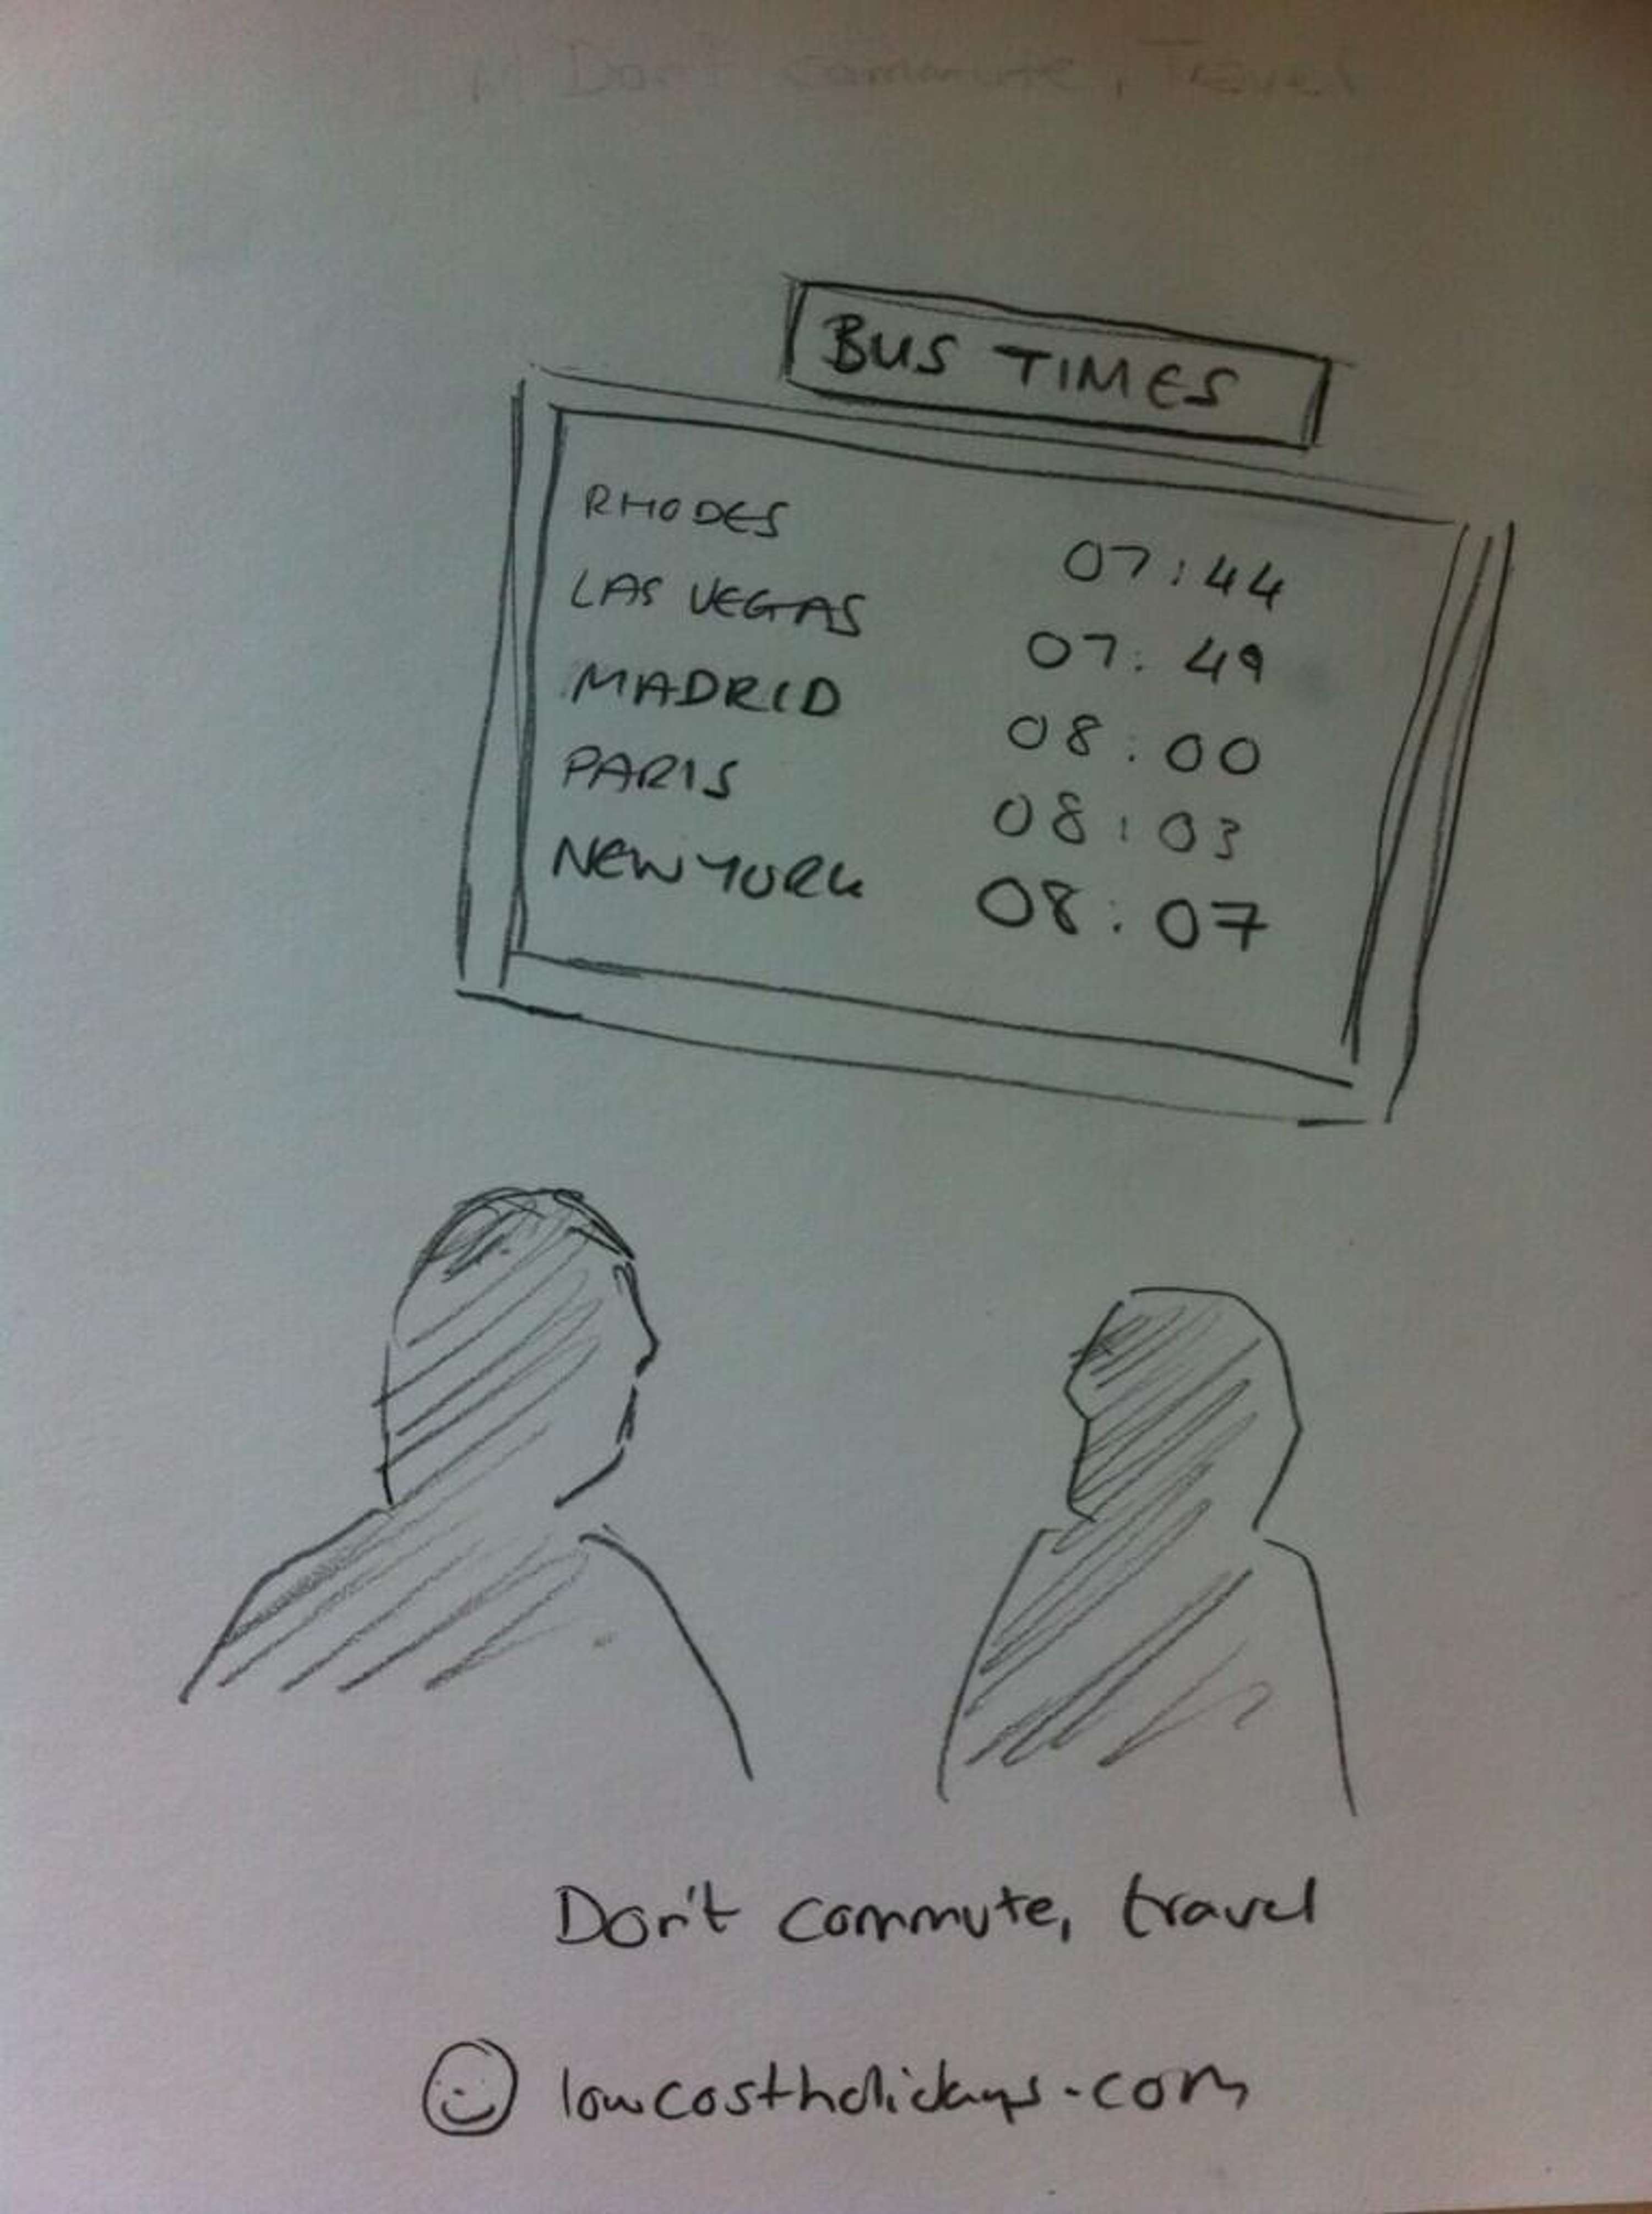 Don't commute, Travel
BUS TIMES
RHODES 07:44
LAS VEGAS 07:49
MADRID 08:00
PARIS 08:03
NEW YORK 08:07
Don't commute, travel
lowcostholidays.com